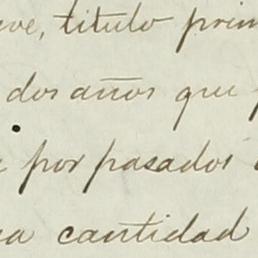 título prim
dos años que
por pasados
cantidad